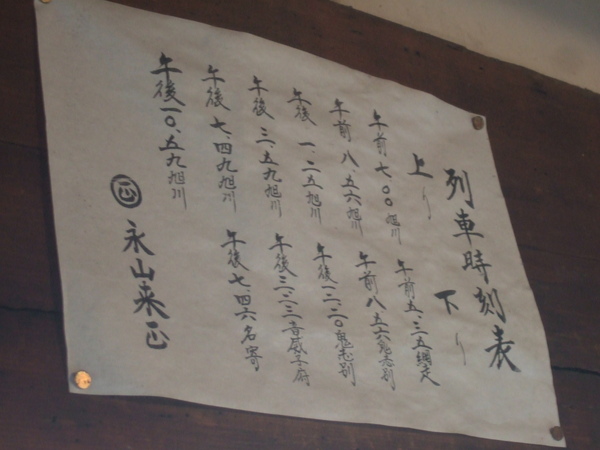 列車時刻表
上り
下り
午前七.〇〇旭川
午前八.五六旭川
午後一.二五旭川
午後三.五九旭川
午後七.四九旭川
午後一〇.五九旭川
午前五.三五網走
午前八.五六鬼志別
午後一二.二〇鬼志別
午後三.二三音威子府
午後七.四六名寄
正 永山来正